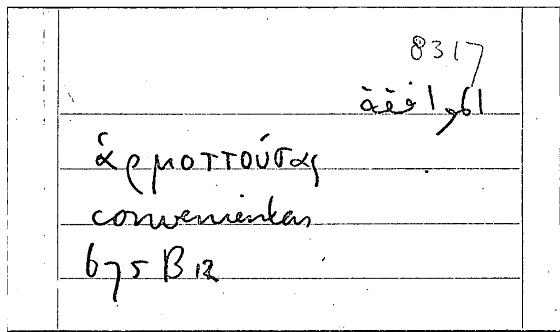 8317
الموافقة
ἁρμοττούσας
convenientes
675 B 12